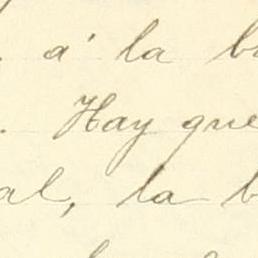 á la b
. Hay que
al, la b